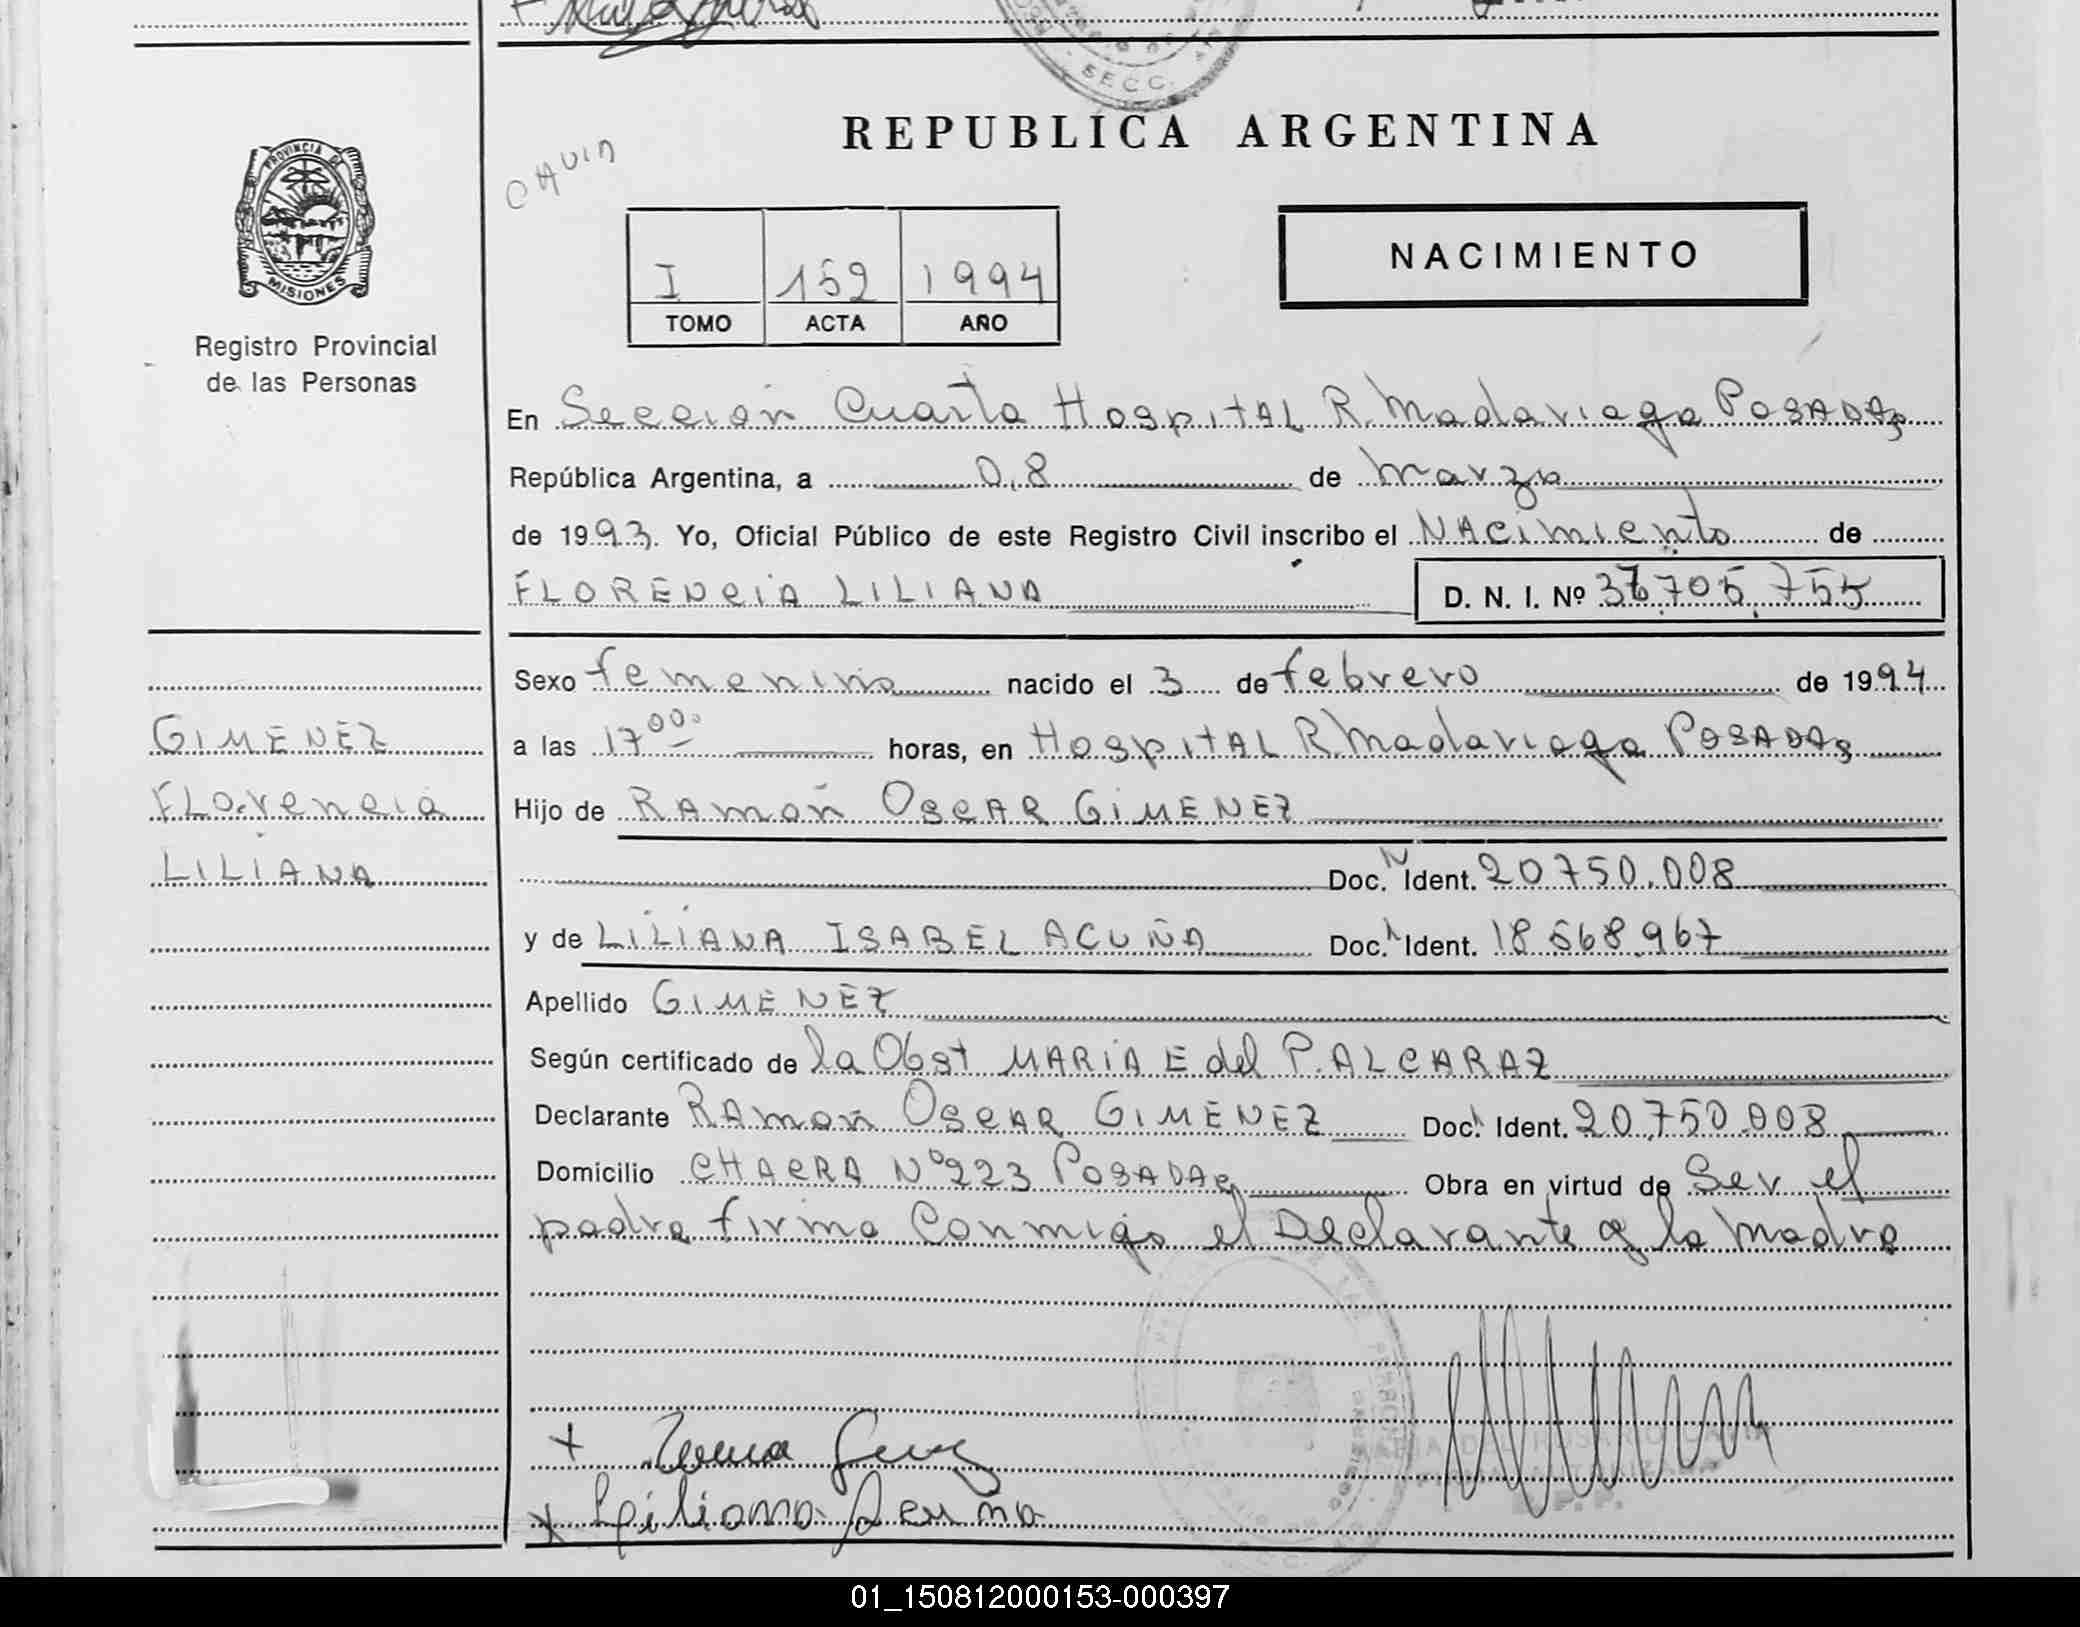 SECC.
REPUBLICA ARGENTINA
PROVINCIA DE
MISIONES
Registro Provincial
de las Personas
CAUIA
I 152 1994
TOMO ACTA AÑO
NACIMIENTO
En Sección Cuarta Hospital R. Madariaga Posadas
República Argentina, a 08 de marzo
de 1993. Yo, Oficial Público de este Registro Civil inscribo el NACimiento de
FLORENCIA LILIANA D. N. I. Nº 705.755
Sexo femenino nacido el 3 de febrero de 1994
a las 17 00 horas, en Hospital R. Madariaga Posadas
Hijo de RAmón OSCAR GIMENEZ
Doc. N Ident. 20750.008
y de LILIANA ISABEL ACUÑA Doc. Ident. 18.568.967
Apellido GIMENEZ
Según certificado de la Obst MARIA E del P. ALCARAZ
Declarante RAmón OSCAR GIMENEZ Doc. Ident. 20.750.008
Domicilio CHACRA Nº 223 POSADAS Obra en virtud de Ser el
padre firma Conmigo el Declarante y la madre
GIMENEZ
FLOrencia
LILIANA
+
x Liliana Acuña
01_150812000153-000397